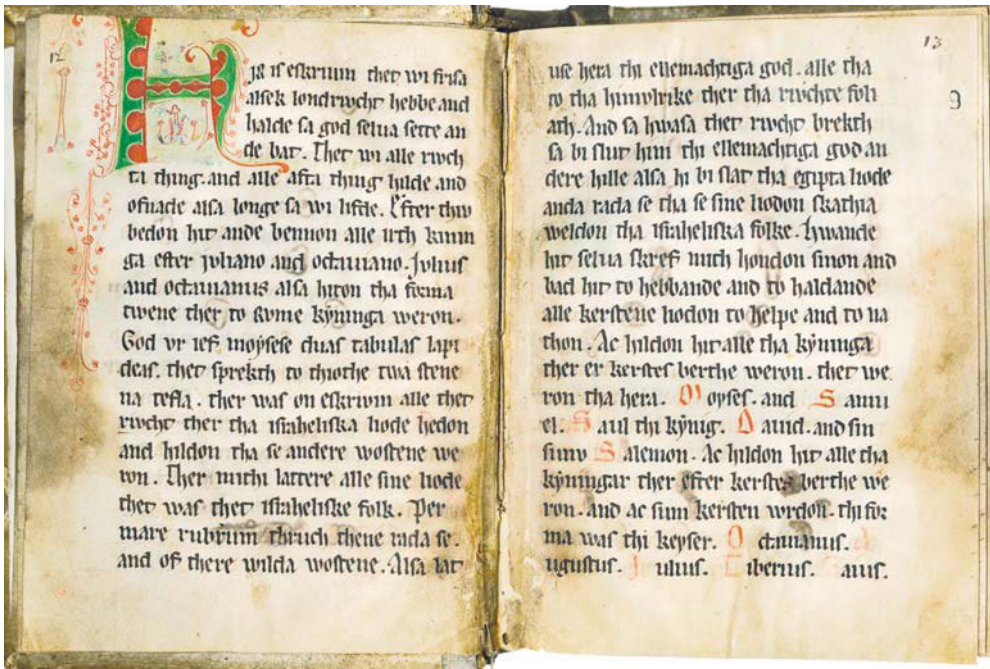 12
H ir is eskriuin thet wi frisa
alsek londriucht hebbe and
halde sa god selua sette an
de bat. Thet wi alle riuch
ta thing. and alle afta thing hilde and
ofnade alsa longe sa wi lifde. Efter thiu
bedon hit ande bennon alle irth kinin
ga efter iuliano and octauiano. Iulius
and octauianus alsa hiton tha forma
twene ther to Rume kyninga weron.
God vr ief moysese duas tabulas lapi
deas. thet sprekth to thiothe twa stene
na tefla. ther was on eskriuin alle thet
riucht ther tha israheliska liode hedon
and hildon tha se andere wostene we
ron. Ther mithi lattere alle sine liode
thet was thet israheliske folk. Per
mare rubrum thruch thene rada se.
and of there wilda wostene. Alsa lat
13
9
use hera thi ellemachtiga god. alle tha
to tha himulrike ther tha riuchte foli
ath. And sa hwasa thet riucht brekth
sa bi slut hini thi ellemachtiga god an
dere hille alsa hi bi slat tha egipta liode
anda rada se tha se sine liodon skathia
weldon tha israheliska folke. Hwande
hit selua skref mith hondon sinon and
bad hit to hebbande and to haldande
alle kerstene liodon to helpe and to na
thon. Ac hildon hit alle tha kyninga
ther er kerstes berthe weron. thet we
ron tha hera. Moyses. and Samu
el. Saul thi kynig. Dauid. and sin
sunu Salemon. Ac hildon hit alle tha
kyningar ther efter kerstes berthe we
ron. and ac sum kersten wrdon. thi for
ma was thi keyser. Octauianus. A
ugustus. Iulius. Tiberius. Gaius.